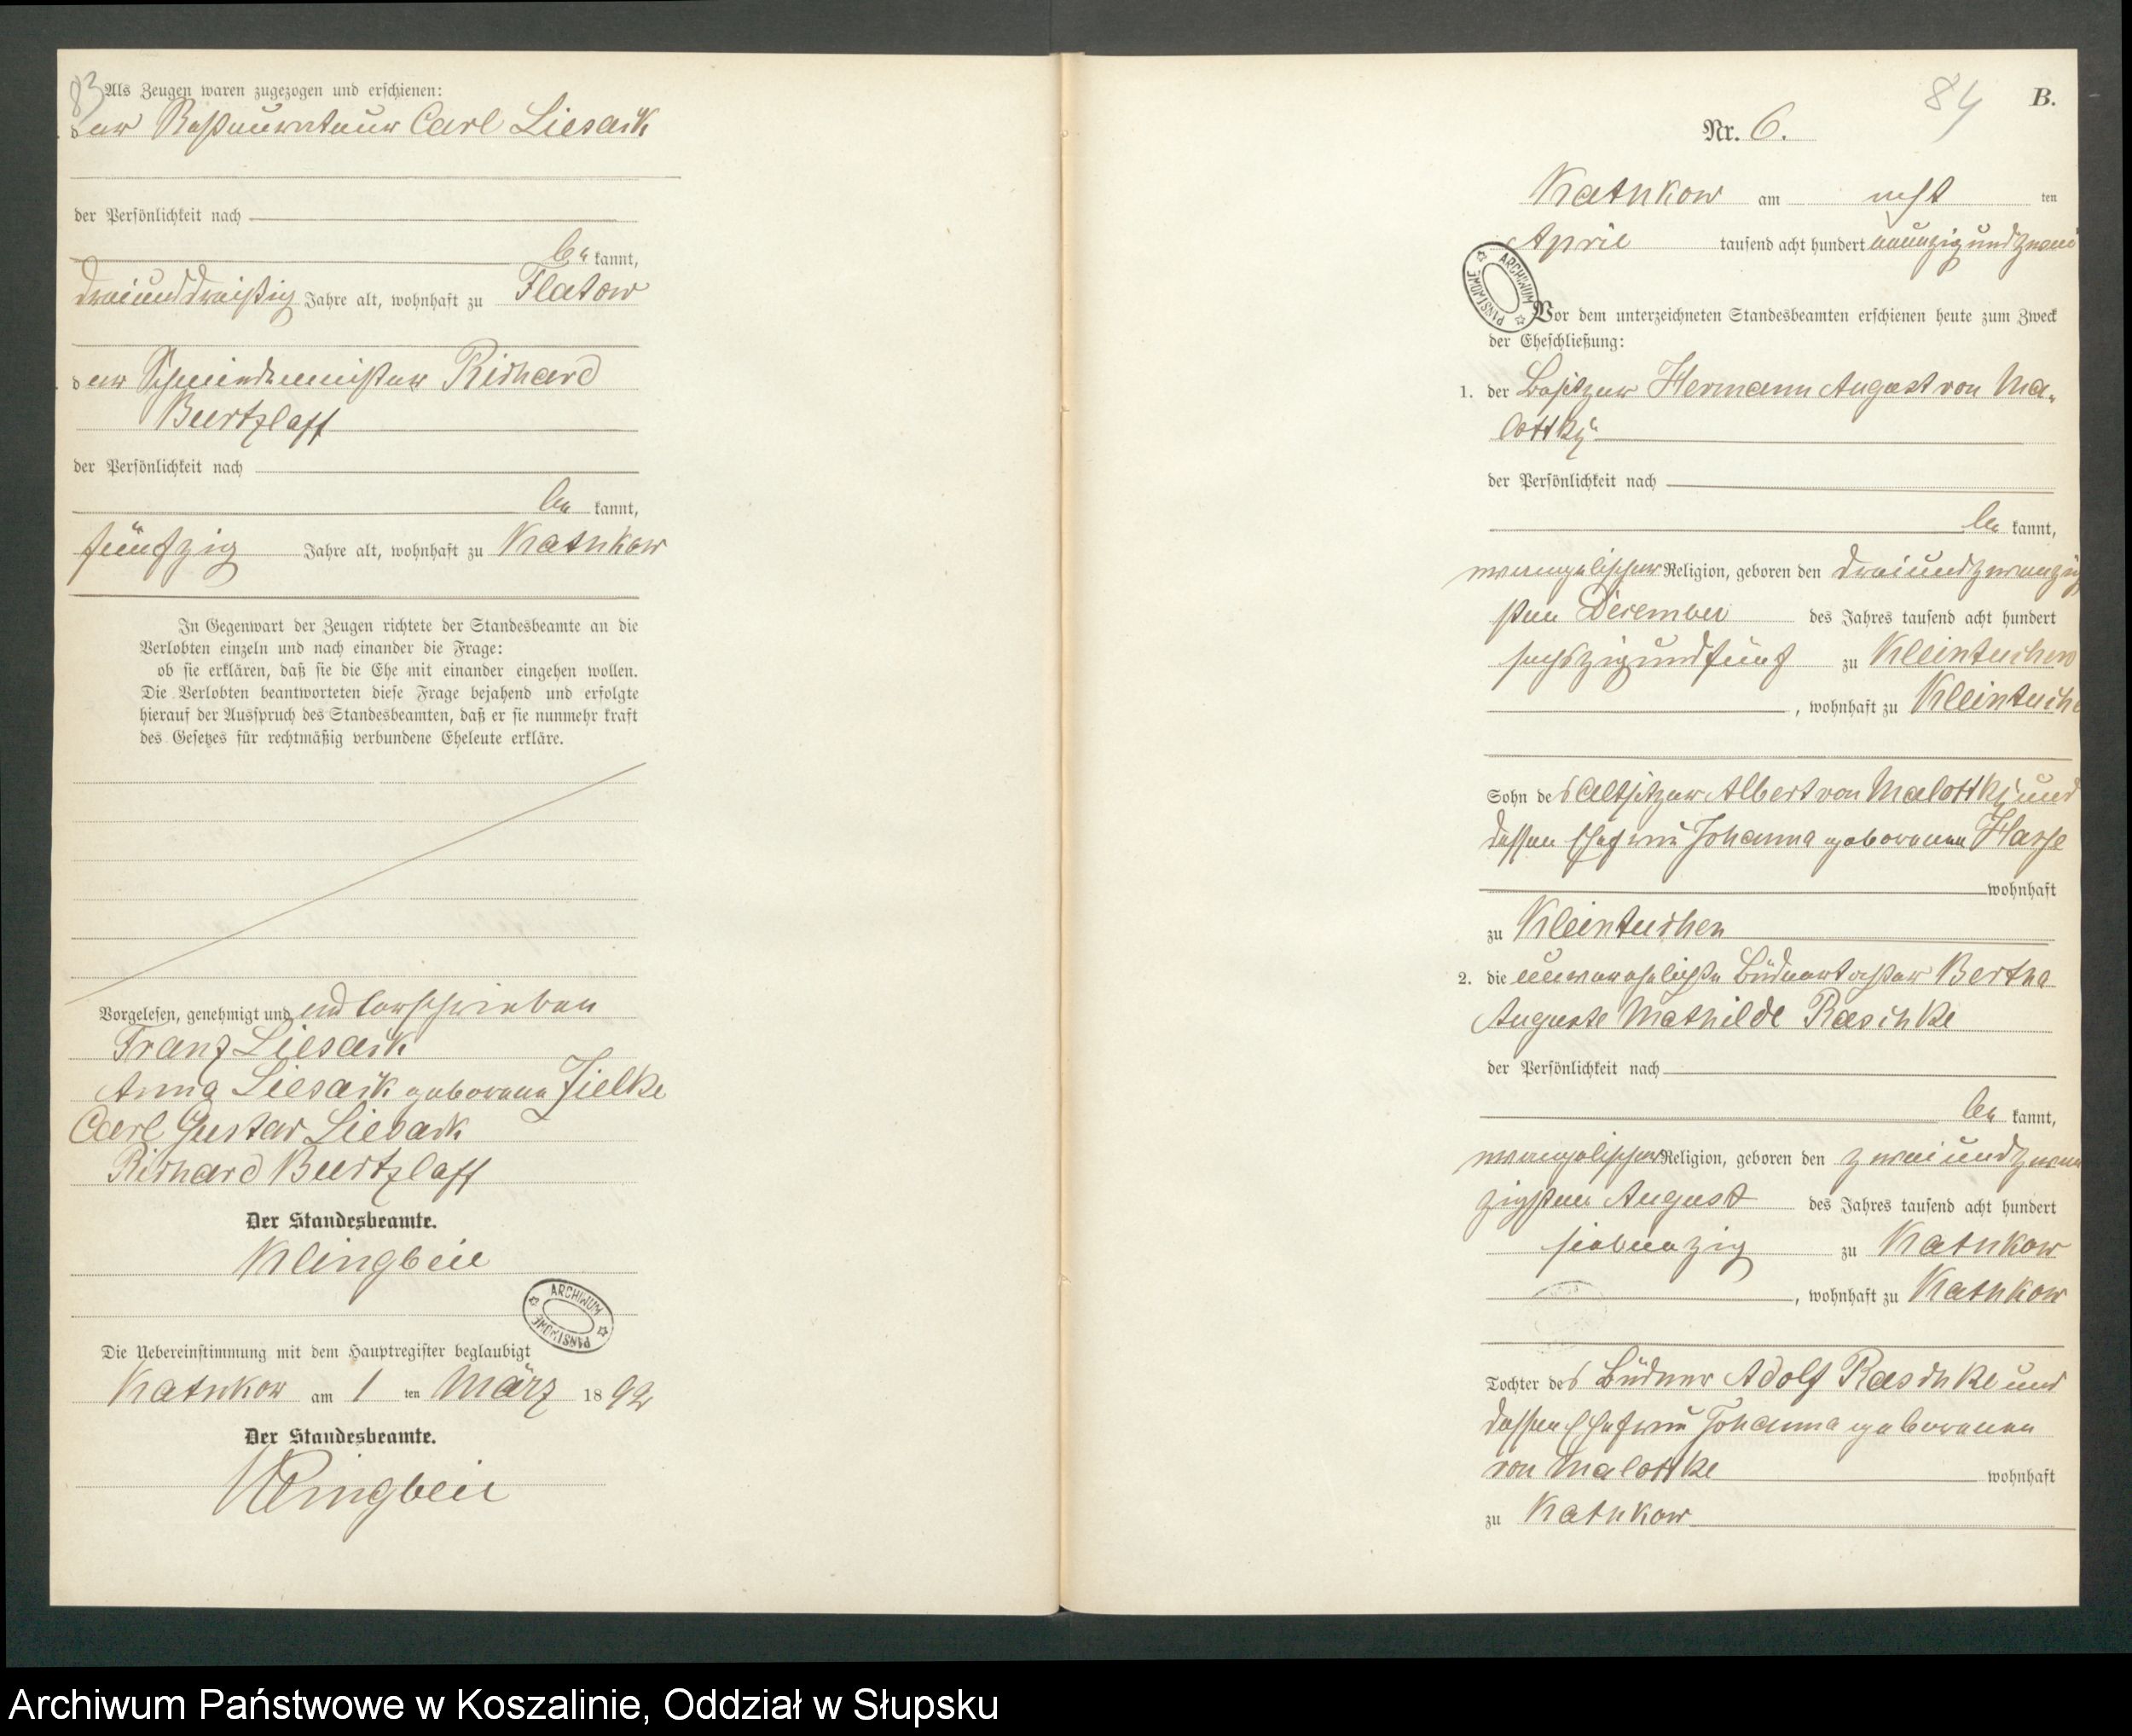 83
Als Zeugen waren zugezogen und erschienen:
der Restaurateur Carl Liesack
der Persönlichkeit nach
be kannt,
dreiunddreißig Jahre alt, wohnhaft zu Flatow
der Schmiedemeister Richard
Buertzlaff
der Persönlichkeit nach
be kannt,
fünfzig Jahre alt, wohnhaft zu Kathkow
In Gegenwart der Zeugen richtete der Standesbeamte an die
Verlobten einzeln und nach einander die Frage:
ob sie erklären, daß sie die Ehe mit einander eingehen wollen.
Die Verlobten beantworteten diese Frage bejahend und erfolgte
hierauf der Ausspruch des Standesbeamten, daß er sie nunmehr kraft
des Gesetzes für rechtmäßig verbundene Eheleute erkläre.
Vorgelesen, genehmigt und unterschrieben
Franz Liesack
Anna Liesack geborene Zielke
Carl Gustav Liesack
Richard Buertzlaff
Der Standesbeamte.
Klingbeil
ARCHIWUM PAŃSTWOWE
Die Uebereinstimmung mit dem Hauptregister beglaubigt
Kathkow am 1 ten März 18 92
Der Standesbeamte.
Klingbeil
84
B.
Nr. 6.
Kathkow am acht ten
April tausend acht hundert neunzig und zwei
ARCHIWUM PAŃSTWOWE
Vor dem unterzeichneten Standesbeamten erschienen heute zum Zweck
der Eheschließung:
1. der Besitzer Hermann August von Ma-
lottky
der Persönlichkeit nach
be kannt,
evangelischer Religion, geboren den dreiundzwanzig
sten December des Jahres tausend acht hundert
sechszig und fünf zu Kleintuchen
, wohnhaft zu Kleintuche
Sohn des Altsitzer Albert von Malottky und
dessen Ehefrau Johanna geborenen Hasse
wohnhaft
zu Kleintuchen
2. die unverehelichte Büdnertochter Bertha
Auguste Mathilde Raschke
der Persönlichkeit nach
be kannt,
evangelischer Religion, geboren den zweiundzwan
zigsten August des Jahres tausend acht hundert
siebenzig zu Kathkow
, wohnhaft zu Kathkow
Tochter des Büdner Adolf Raschke und
dessen Ehefrau Johanna geborenen
von Malottke wohnhaft
zu Kathkow
Archiwum Państwowe w Koszalinie, Oddział w Słupsku